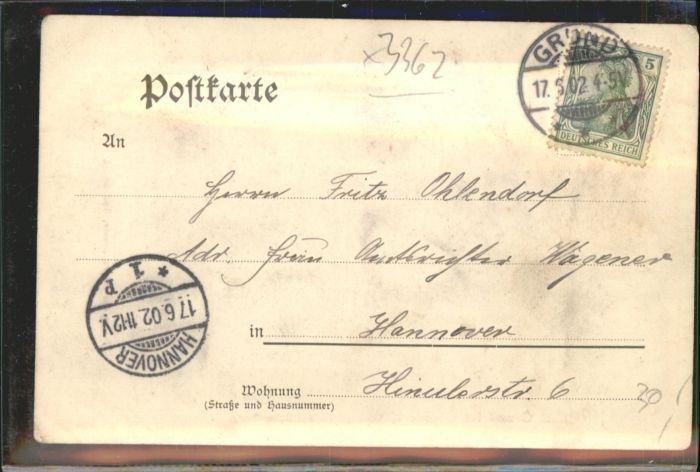 x3362
GRUND
17.6.02. 4-5N.
5
DEUTSCHES REICH
Postkarte
An
Herrn Fritz Ohlendorf
Adr. Frau Amtsrichter Wagener
in Hannover
Wohnung
(Straße und Hausnummer)
6
HANNOVER
17.6.02.11-12V.
* 1 P
20